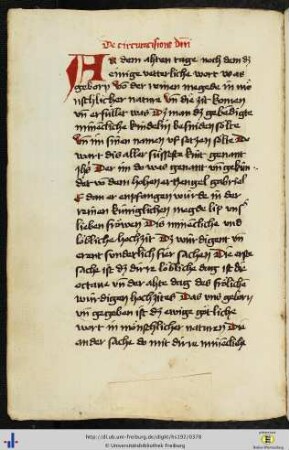 De circumcisione dni
An dem ahten tage noch dem dz
einige vetterliche wort was
geborn von der reinen megede in mō
nschlicher nature vn die zit komen
vn erfüllet was Dz man dz gebēdigte
minnecliche kindelin besniden solte
vn im sinen namen vf setzen solte Do
wart dis aller süssest kint genant
jhs Der im do was genant vn gekün
det von dem hohen ertzengel gabriel
e dan er entpfangen würde in der
reinen küniglichen megde lip vnser
lieben frowen Dis minnecliche vnd
löbliche hochzit Dz wurdigent vn
erent sunderlich fier sachen Die erste
sache ist dz dirre löbliche dag ist die
octaue vn der ahte dag des fröliche
wurdigen hochzites Das vns geborn
vn gegeben ist dz ewige götliche
wort in mönschlicher naturen Die
ander sache do mit dirre minnecliche
http://dl.ub.uni-freiburg.de/diglit/hs192/0378
© Universitätsbibliothek Freiburg